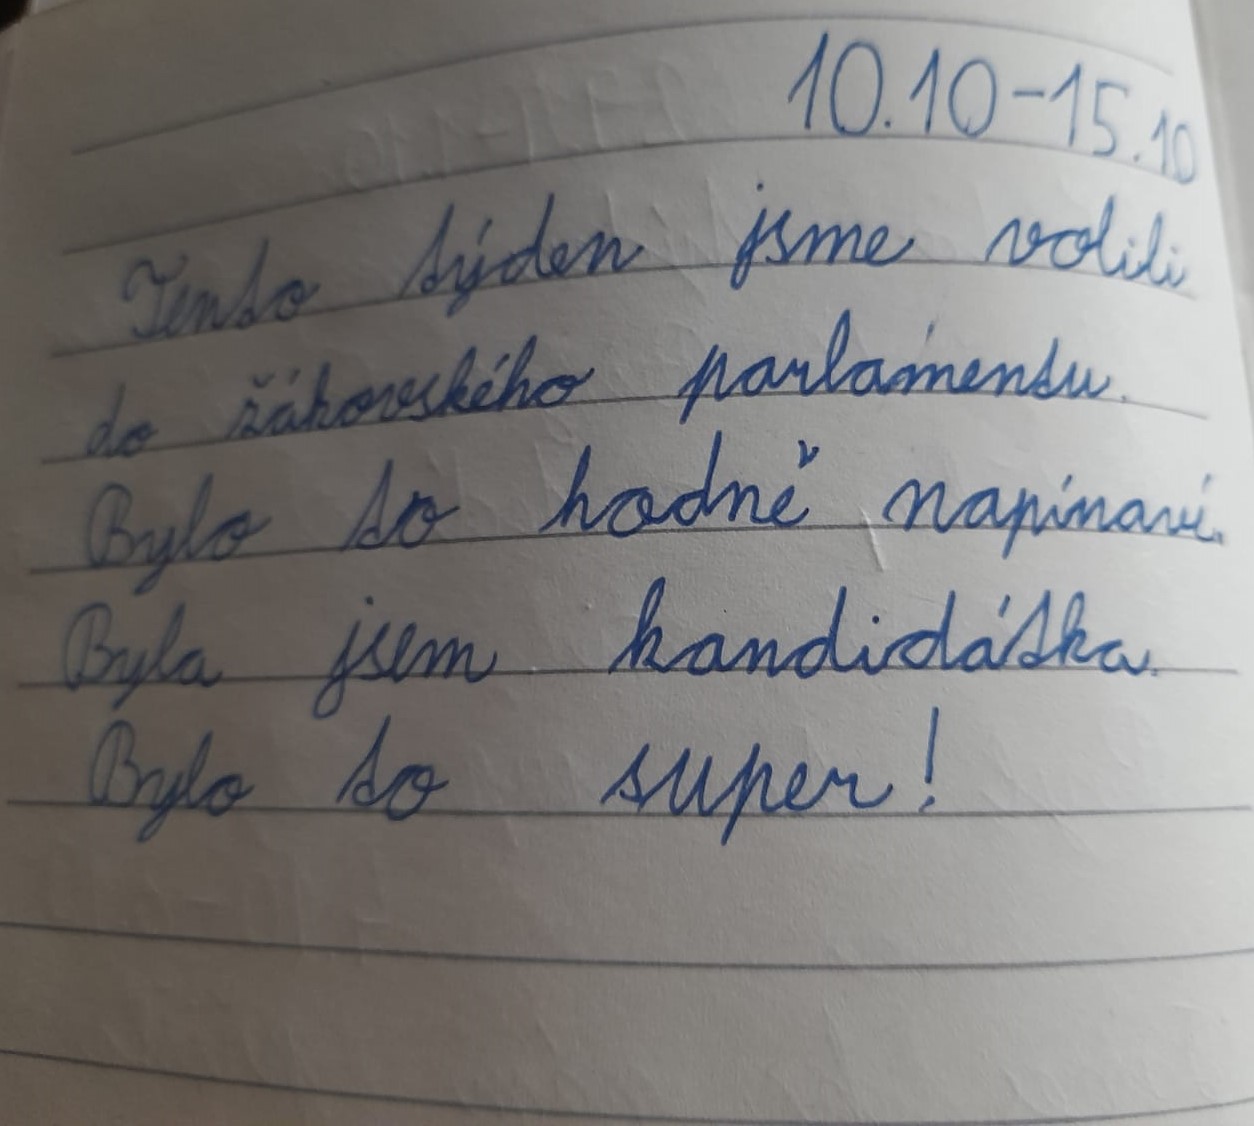 10.10-15.10
Tento týden jsme volili
do žákovského parlámentu.
Bylo to hodně napínavé.
Byla jsem kandidátka.
Bylo to super!